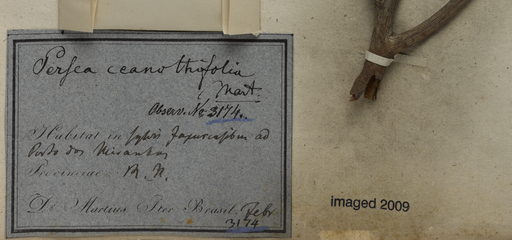 Persea ceanothifolia
Mart.
Observ. No. 3174.
Habitat in sylvis Japurensibus ad
Porto dos Miranhas
Provinciae R. N.
Dr. Martius Iter Brasil. Febr
3174
imaged 2009